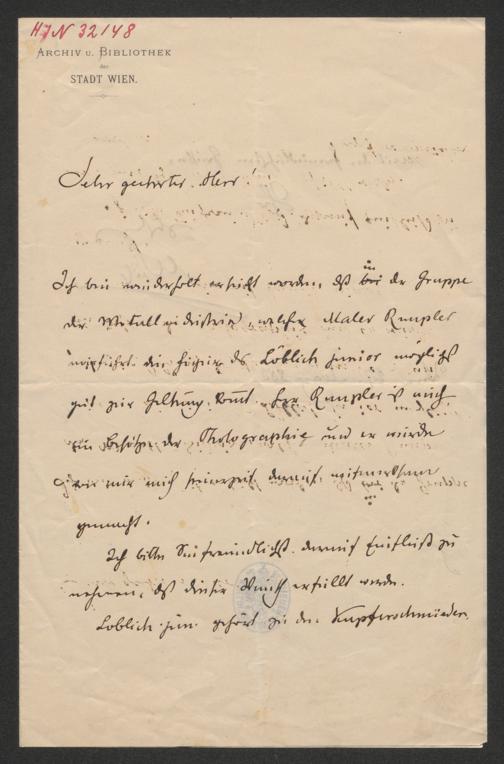 HJN 32148
ARCHIV U. BIBLIOTHEK
der
STADT WIEN.
Sehr geehrter Herr!
Ich bin wiederholt ersucht worden, daß in der Gruppe
der Metallindustrie, welche Maler Rumpler
ausführt, die Figur des Löblich junior möglichst
gut zur Geltung kommt. Herr Rumpler ist auch
im Besitze der Photographie und er wurde
von mir auch seinerzeit darauf aufmerksam
gemacht.
Ich bitte Sie freundlichst darauf Einfluß zu
nehmen, daß dieser Wunsch erfüllt werde.
Löblich jun. gehört zu den Kupferschmieden.